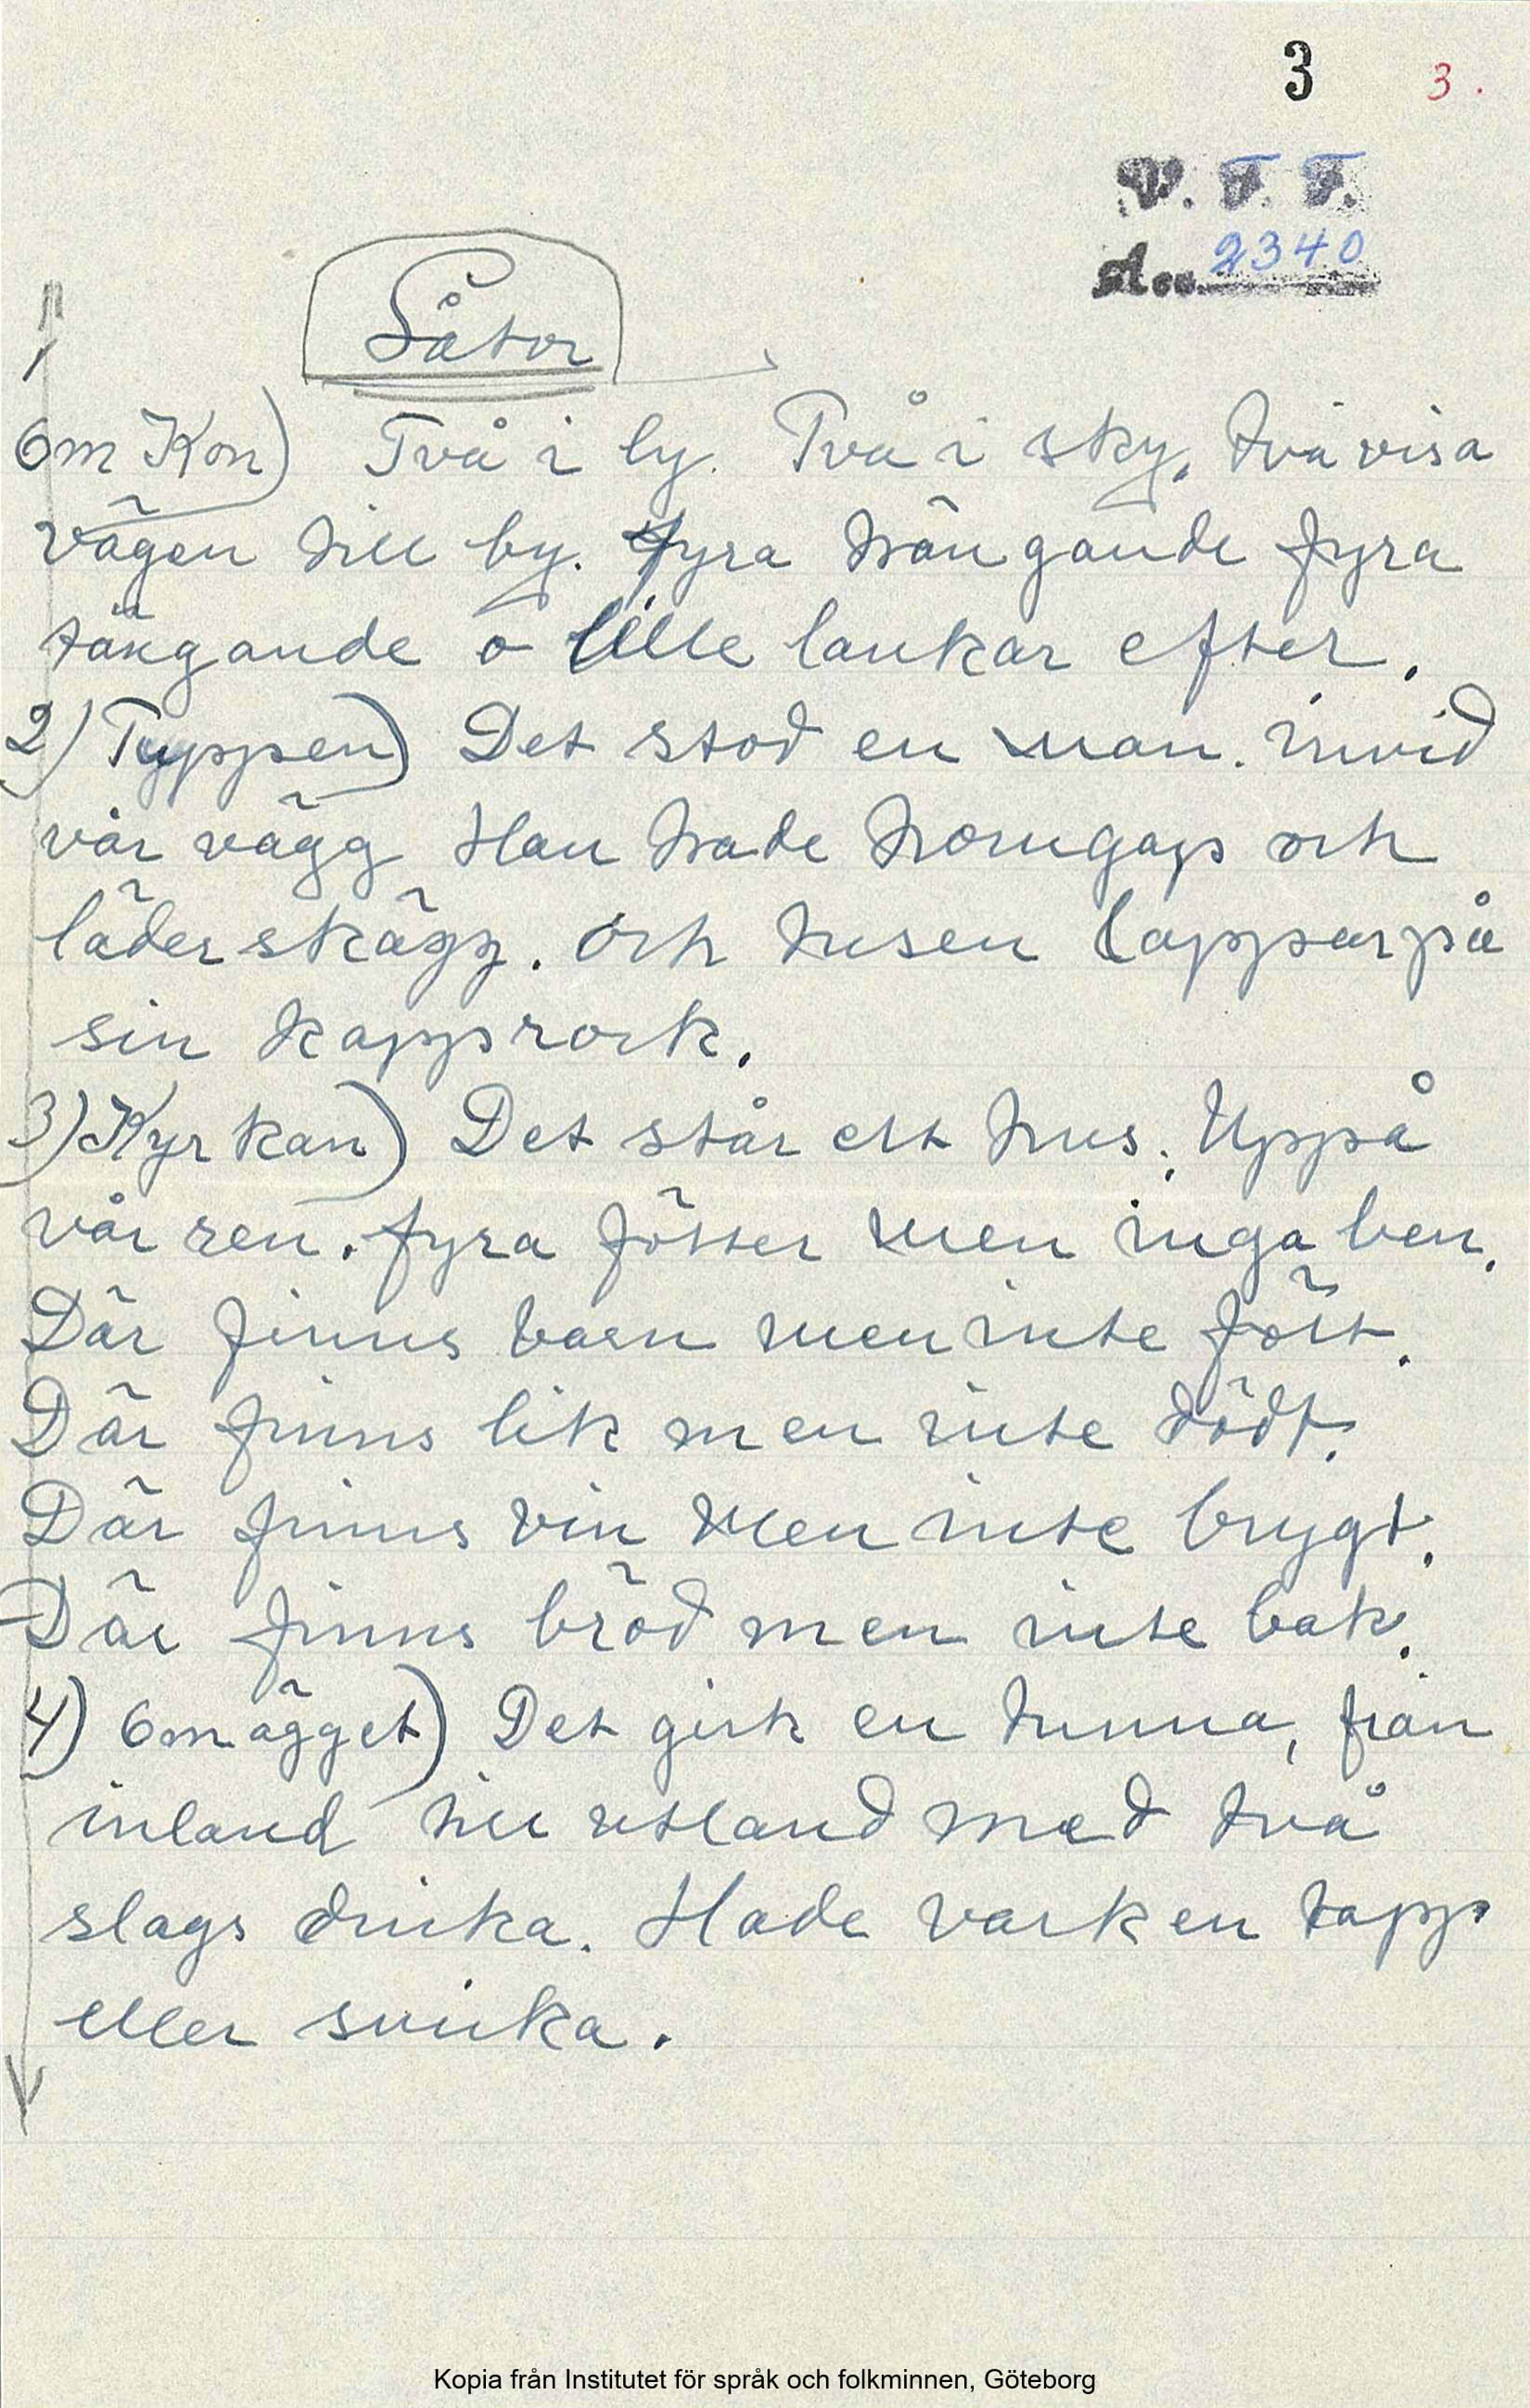 3 3.
V. F. F.
Acc. 2340
Gåtor
1
Om Kon) Två i ly. Två i sky. två visa
vägen till by. fyra hängande fyra
tängande o lille lankar efter.
2) Typpen) Det stod en man. invid
vår vägg Han hade horngap och
läderskägg. och tusen lappar på
sin kapprock.
3) Kyrkan) Det står ett hus. Uppå
vår ren. fyra fötter men inga ben.
Där finns barn men inte fött.
Där finns lik men inte dödt.
Där finns vin men inte brygt.
Där finns bröd men inte bak.
4) Om ägget) Det gick en tunna, från
inland till utland med två
slags drika. Hade varken tapp
eller svika.
Kopia från Institutet för språk och folkminnen, Göteborg